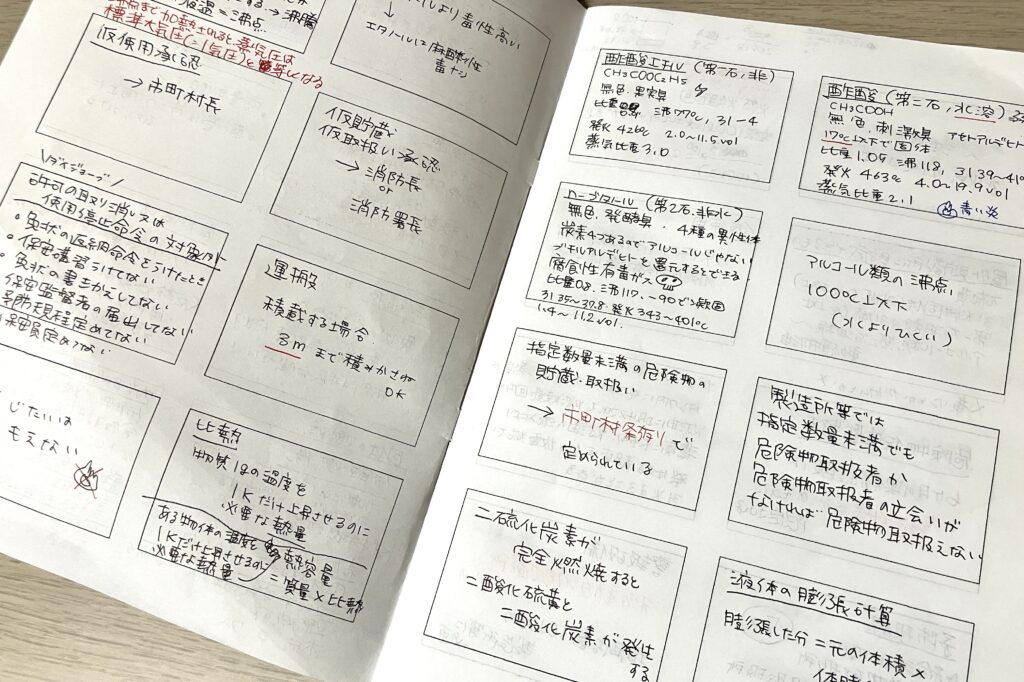 液温=沸点 → 沸騰
沸点まで加熱すると、蒸気圧は
標準大気圧(=1気圧)と等しくなる
仮使用承認
→ 市町村長
より毒性高い
エタノールは麻酔性
毒ナシ
仮貯蔵
仮取扱い承認
→ 消防長
or
消防署長
\ダイジョーブ/
許可の取り消し又は
使用停止命令の対象外
・免状の返納命令をうけたとき
・保安講習うけてない
・免状の書きかえしてない
保安監督者の届出してない
予防規程定めてない
保安員定めてない
運搬
積載する場合
3mまで積みかさね
OK
じたいは
もえない
比熱
物質1gの温度を
1Kだけ上昇させるのに
必要な熱量
ある物体の温度を
1Kだけ上昇させるのに
必要な熱量
熱容量
=質量×比熱
酢酸エチル(第一石、非)
CH3COOC2H5
無色、果実臭
比重0.9 沸77℃、引-4
発火426℃ 2.0~11.5vol
蒸気比重3.0
酢酸(第二石、水溶)
CH3COOH
無色、刺激臭 アセトアルデヒト
17℃以下で固体
比重1.05 沸118、引39~41℃
発火463℃ 4.0~19.9vol
蒸気比重2.1
青い炎
n-ブタノール(第2石、非水)
無色、発酵臭・4種の異性体
炭素4つあるのでアルコールじゃない
ブチルアルデヒドを還元するとできる
腐食性有毒ガス
比重0.8、沸117、-90で融固
引35~37.8、発火343~401℃
1.4~11.2vol.
アルコール類の沸点
100℃以下
(水よりひくい)
指定数量未満の危険物の
貯蔵・取扱い
→ 市町村条例で
定められている
製造所等では
指定数量未満でも
危険物取扱者か
危険物取扱者の立会いが
なければ危険物取扱えない
二硫化炭素が
完全燃焼すると
二酸化硫黄と
二酸化炭素が発生
する
液体の膨張計算
膨張した分=元の体積×